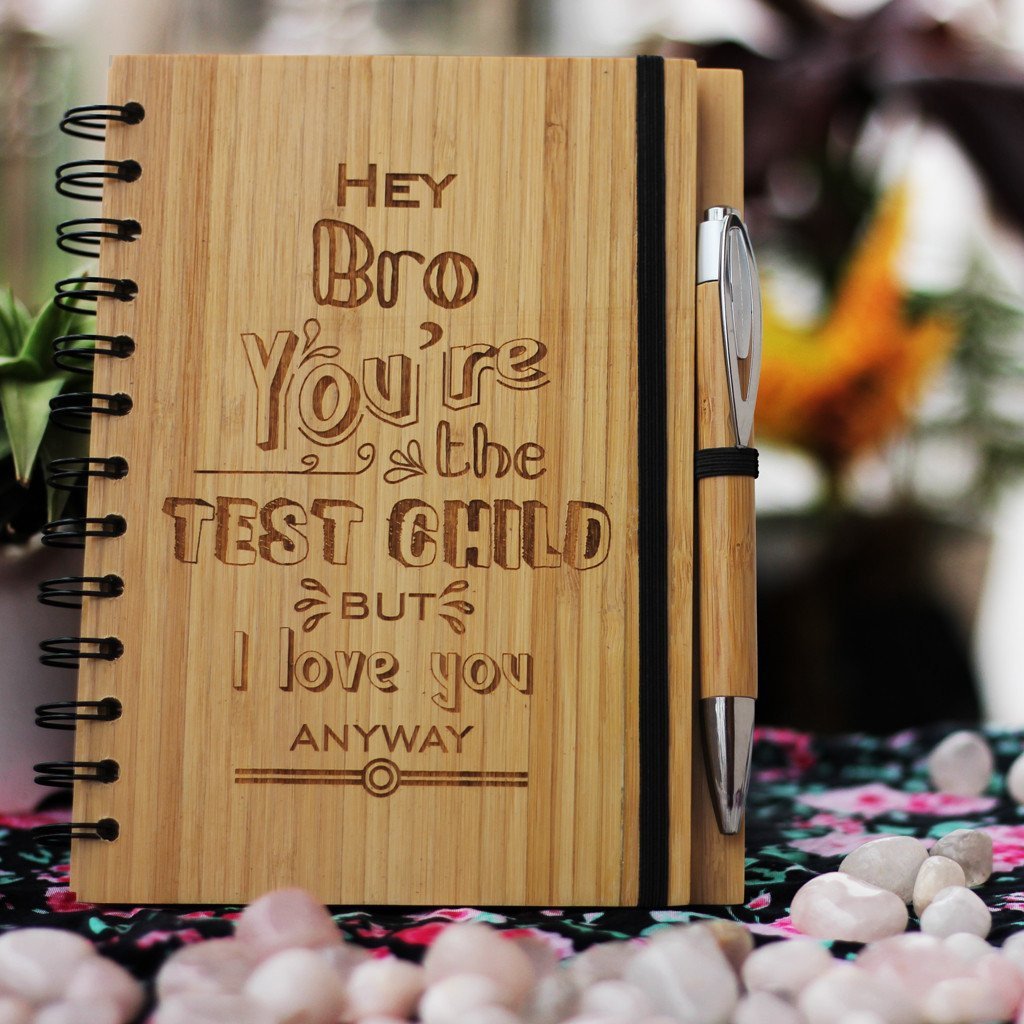 HEY
Bro
You're
the
TEST CHILD
BUT
I love you
ANYWAY